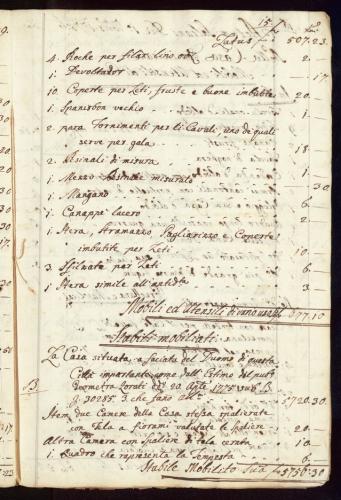 15
Latus 507.23
4. Roche per filar lino 2.
1. Devoltador 17
10 Coperte per Leti, fruste e buone imbutite 20.
1. vechio
2 para Fornimenti per li Cavali, uno de quali
serve per gala 18.
2. di misura
1. Mezzo misurato 1.30
1. Mangano 6.
1. Canappè lucero 2.
1. Stramazzo, Pagliarizzo e Coperte
imbutite per Leti 10.
3. per Leti 6.
1. simile all'antidta 3.
Mobili ed Utensili di uno
Stabili mobiliati.
La Casa situata, a faciata del Duomo di questa
Città importante come dall' Estimo del pub
20 Aple 1775
30285 3 che fano 5720.30
Item due Camere della Casa stessa spalierate
con Tela a fiorami valutate le spaliere 20.
Altra Camera con spaliere di tela cerata 10.
1. Quadro che rapresenta la Tempesta 6.
Stabile Mobiliato 5756.30